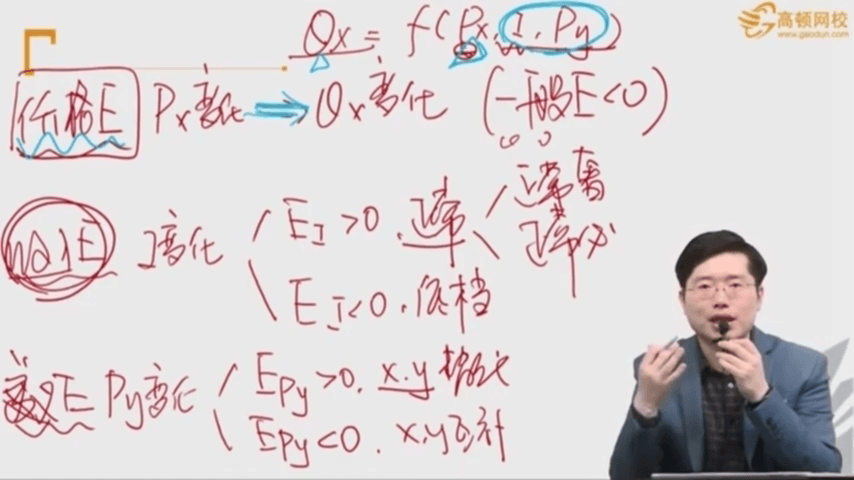 高顿网校
www.gaodun.com
Qx = f(Px, I, Py)
价格E Px变化 → Qx变化 (一般E<0)
收入E I变化 EI>0, 正常 正常奢
正常必
EI<0, 低档
E Py变化 EPy>0, x.y替代
EPy<0, x.y互补